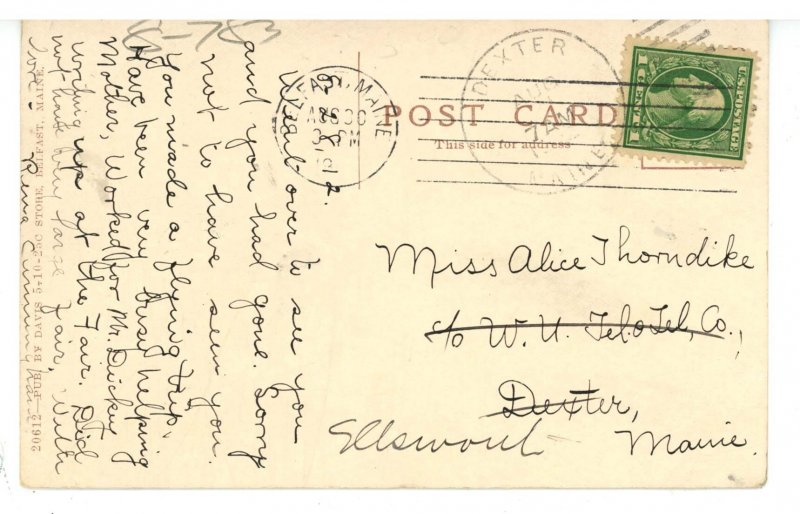 POST CARD
This side for address
DEXTER
AUG
7 AM
MAINE
MAINE
1912
U.S. POSTAGE
1 CENT 1
Miss Alice Thorndike
c/o W. U. Tel. Co.,
Dexter,
Ellsworth
Maine.
Went over to see you
and you had gone. Sorry
not to have seen you.
You made a flying trip.
Have been very busy helping
Mother, Worked for Mr. Dickey
up at the Fair. Did
not have very large fair, With
love.
Rena Cunningham
20612—PUB. BY DAVIS 5-10-25C STORE, BELFAST, MAINE